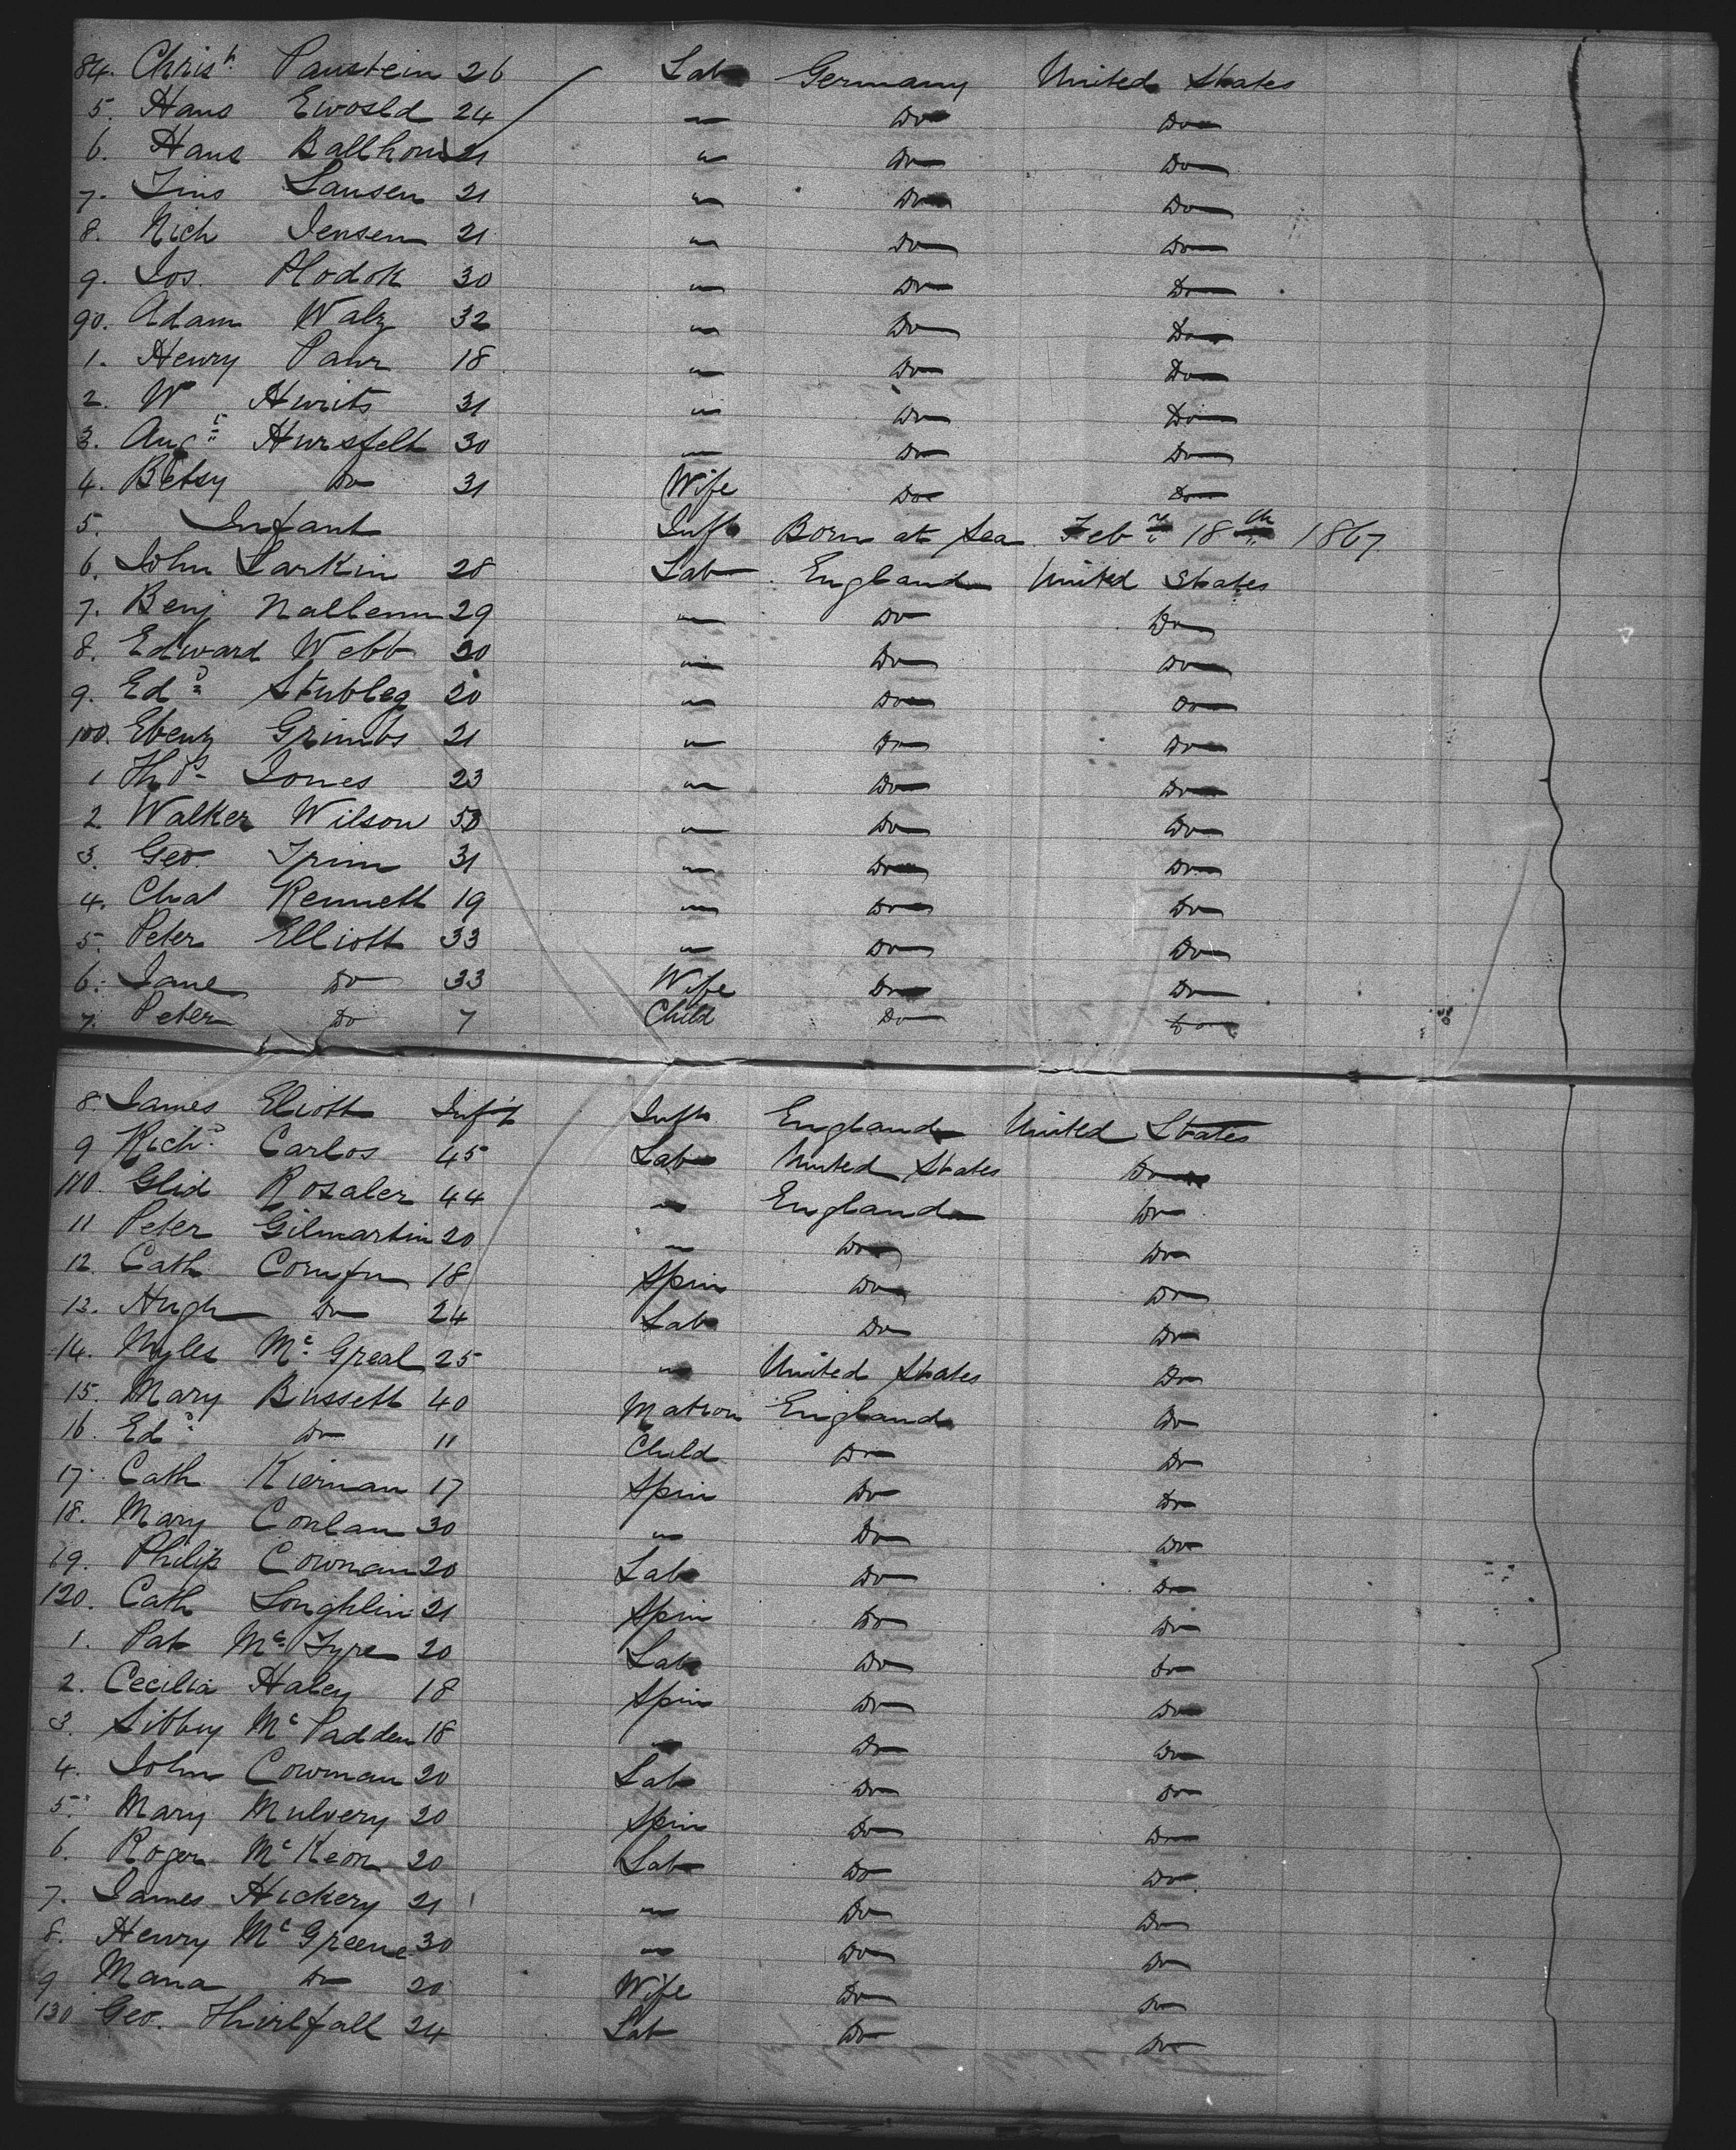 84. Chris.h Paustein 26 Lab Germany United States
5. Hans Ewosld 24 " Do Do
6. Hans Ballhom 21 " Do Do
7. Jins Lausen 21 " Do Do
8. Nich Jensen 21 " Do Do
9. Jos. Hodok 30 " Do Do
90. Adam Walz 32 " Do Do
1. Henry Paur 18 " Do Do
2. W Hurits 31 " Do Do
3. Aug.t Hursfelt 30 " Do Do
4. Betsy Do 31 Wife Do Do
5. Infant Inft Born at Sea Feb.ry 18th 1867
6. John Larkin 28 Lab England United States
7. Benj Nallenn 29 " Do Do
8. Edward Webb 20 " Do Do
9. Ed.d Stubleg 20 " Do Do
100. Ebenz Grimbs 21 " Do Do
1 Thos Jones 23 " Do Do
2 Walker Wilson 50 " Do Do
3. Geo. Irim 31 " Do Do
4. Chat Kennett 19 " Do Do
5. Peter Elliott 33 " Do Do
6. Jane Do 33 Wife Do Do
7. Peter Do 7 Child Do Do
8. James Eliott Inf't Inft England United States
9 Rich.d Carlos 45 Lab United States Do
110. Glid Rosaler 44 " England Do
11 Peter Gilmartin 20 " Do Do
12. Cath Comfn 18 Spin Do Do
13. Hugh Do 24 Lab Do Do
14. Myles Mc Greal 25 " United States Do
15. Mary Bussett 40 Matron England Do
16. Ed.d Do 11 Child Do Do
17. Cath Kiernan 17 Spin Do Do
18. Mary Conlan 30 " Do Do
19. Philip Cowman 20 Lab Do Do
120. Cath Loughlin 21 Spin Do Do
1. Pat Mc Tyre 20 Lab Do Do
2. Cecilia Haley 18 Spin Do Do
3. Sibby Mc Padden 18 " Do Do
4. John Cowman 20 Lab Do Do
5. Mary Mulvery 20 Spin Do Do
6. Roger Mc Keon 20 Lab Do Do
7. James Hickery 21 " Do Do
8. Henry Mc Greene 30 " Do Do
9 Maria Do 20 Wife Do Do
130 Geo. Thirlfall 24 Lab Do Do